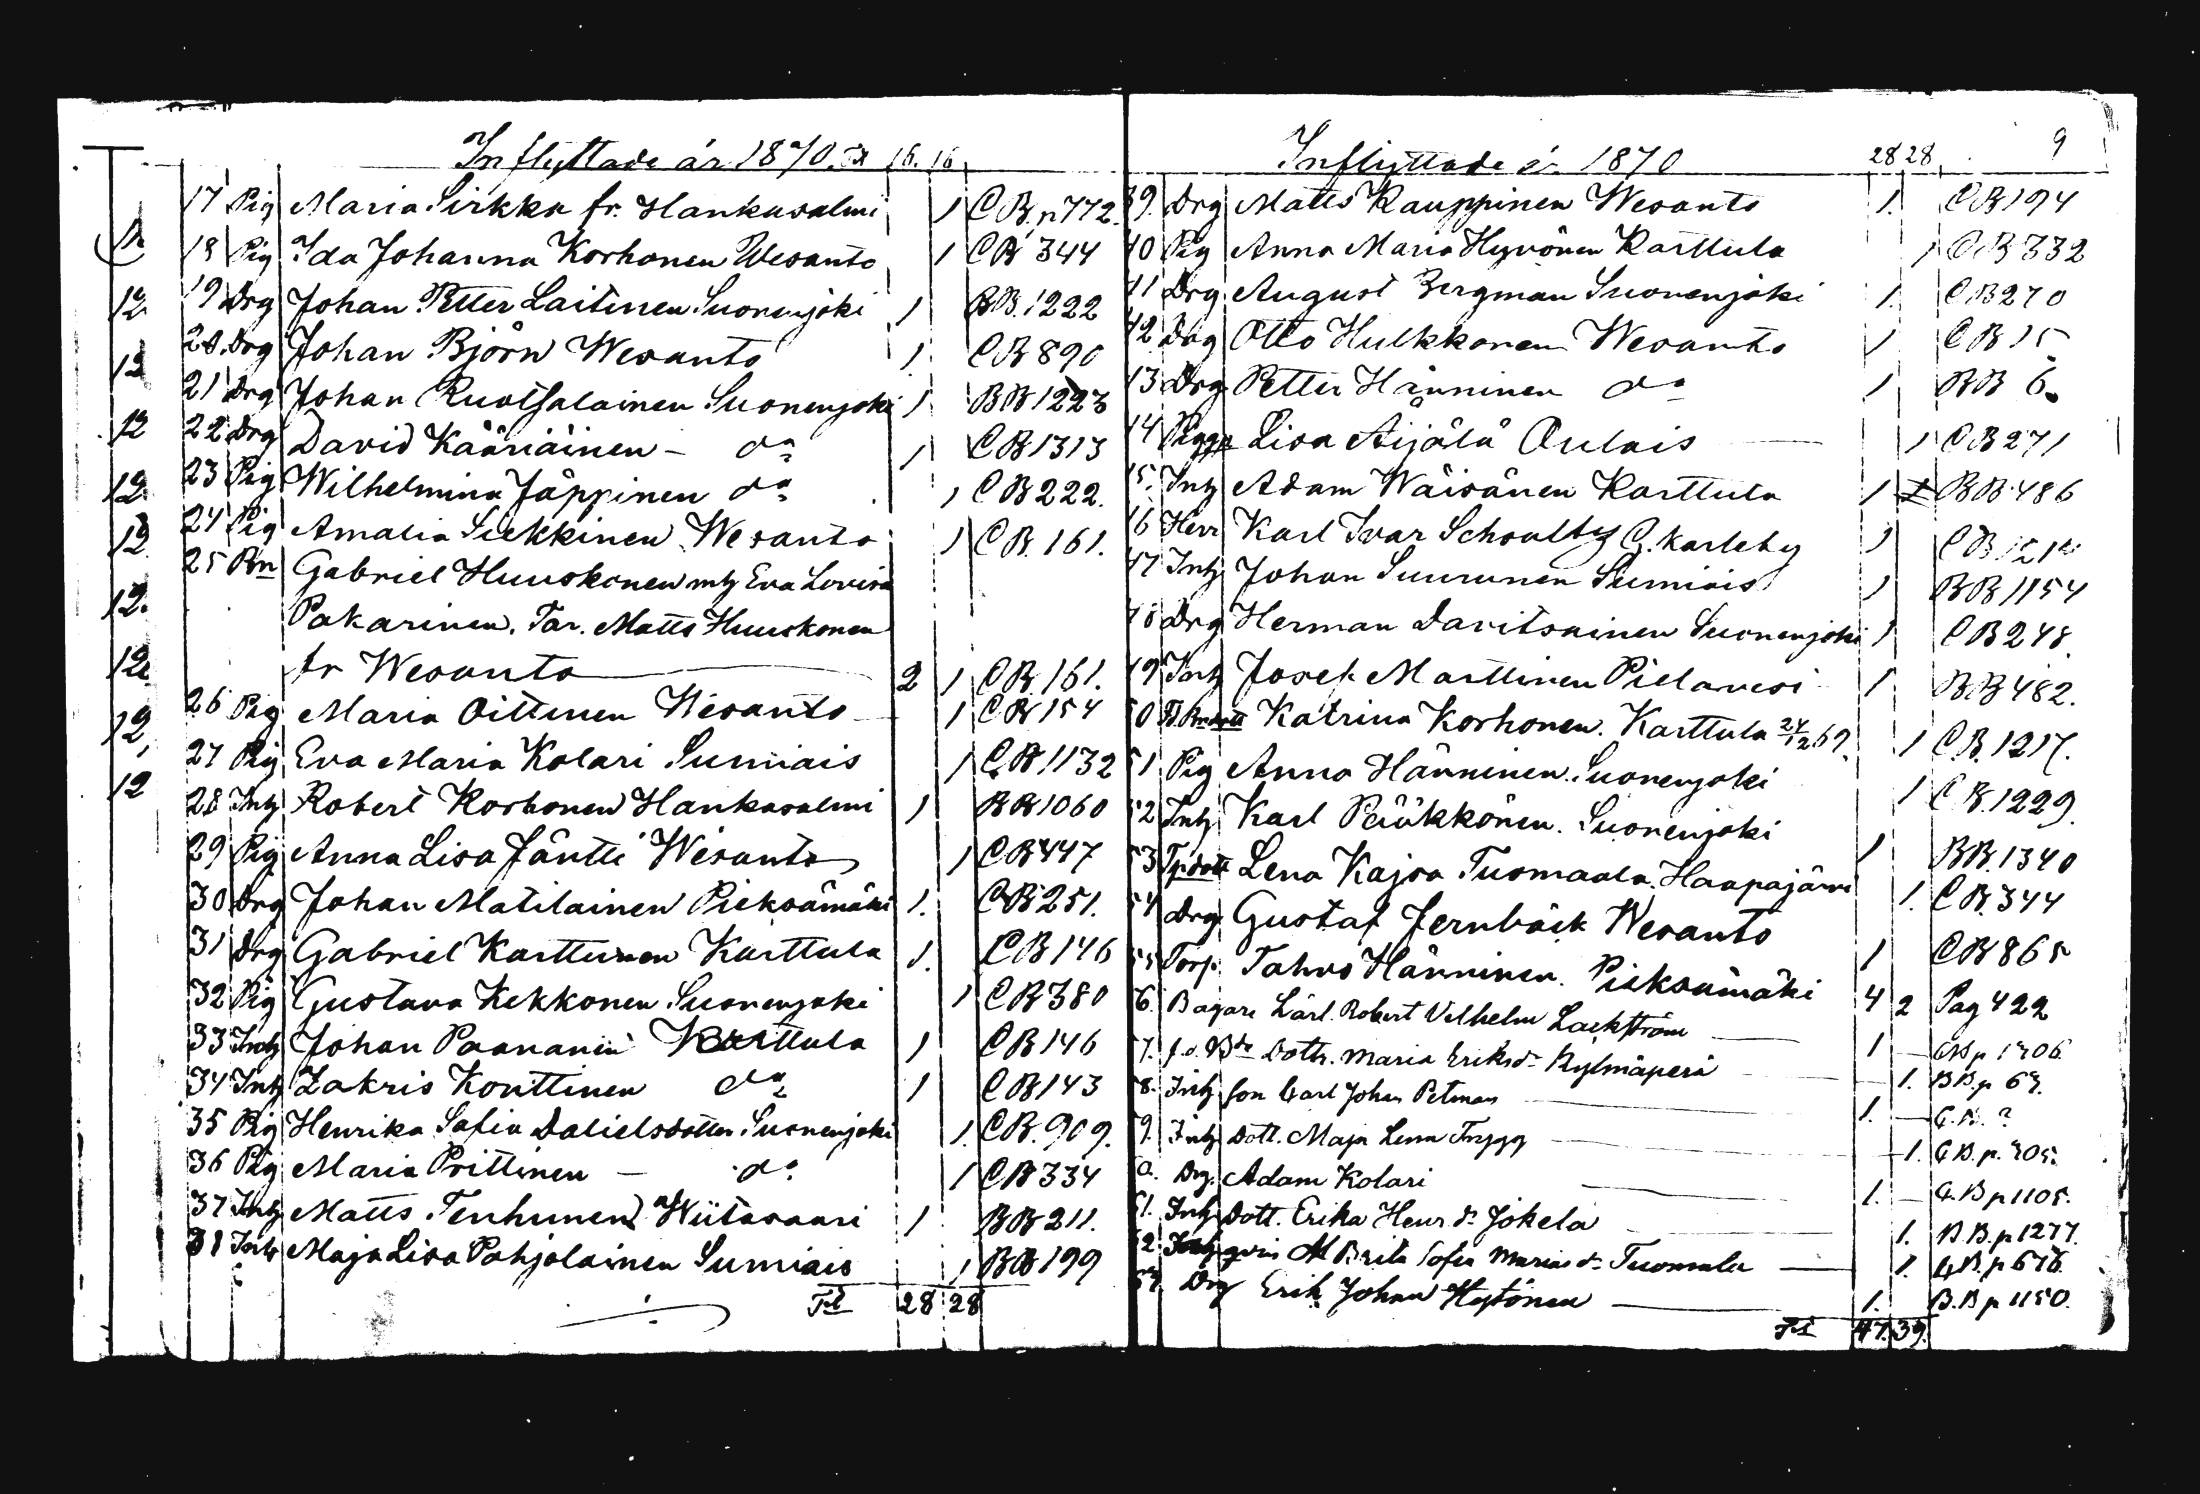 Inflyttade år 1870. Tr 16. 16
17 Pig Maria Sirkka fr. Hankasalmi 1 CB p 772.
18 Pig Ida Johanna Korhonen Wesanto 1 CB 344
19 Drg Johan Petter Laitinen Suonenjoki 1 BB 1222
20. Drg Johan Björn Wesanto 1. CB 890
21 Drg Johan Ruotsalainen Suonenjoki 1 BB 1223
22 Drg David Kääriäinen - do 1 CB 1313
23 Pig Wilhelmina Jäppinen do 1 CB 222.
24 Pig Amalia Siekkinen Wesanto 1 CB. 161.
25 Bn Gabriel Huuskonen mh Eva Lovisa
Pakarinen. Far. Matts Huuskonen
fr Wesanto 2 1 CB. 161.
26 Pig Maria Oittinen Wesanto 1 CB 154
27 Pig Eva Maria Kolari Sumiais 1 CB 1132
28 Inh Robert Korhonen Hankasalmi 1 BB 1060
29 Pig Anna Lisa Jäntti Wesanto 1 CB 447
30 Drg Johan Matilainen Pieksämäki 1. CB 251.
31 Drg Gabriel Karttunen Karttula 1. CB 146
32 Pig Gustava Kekkonen Suonenjoki 1 CB 380
33 Inh Johan Paananen Karttula 1 CB 146
34 Inh Zakris Konttinen do 1 CB 143
35 Pig Henrika Sofia Danielsdotter Suonenjoki 1. CB. 909.
36 Pig Maria Prittinen - do. 1 CB 334
37 Inh Matts Tenhunen Wiitasaari 1 BB 211.
38 Inh Maja Lisa Pohjolainen Sumiais 1 BB 199
28 28
Inflyttade år 1870 28 28 9
39. Drg Matts Kauppinen Wesanto 1. CB 194
40 Pig Anna Maria Hyvönen Karttula 1 CB 332
41 Drg August Bergman Suonenjoki 1. CB 270
42 Drg Otto Hulkkonen Wesanto 1 CB 15
43 Drg Petter Hänninen do 1 BB 6.
44 Lisa Äijälä Oulais 1 CB 271
45. Inh Adam Wäisänen Karttula 1 BB 486
46 Herr Karl Ivar Schoultz G. Karleby 1
47 Inh Johan Suurunen Sumiais 1 BB 1154
48 Drg Herman Davitsainen Suonenjoki 1 CB 248.
49 Inh Josef Marttinen Pielavesi 1 BB 482.
50 Katrina Korhonen. Karttula 24/12 69. 1 CB. 1217.
51 Pig Anna Hänninen Suonenjoki 1 CB. 1229.
52 Inh Karl Pääkkönen. Suonenjoki 1 BB. 1340
53 Tp.dott Lena Kajsa Tuomaala. Haapajärvi 1. CB. 344
54 Drg Gustaf Jernbäck Wesanto 1 CB 865
55 Torp. Tahvo Hänninen. Pieksämäki 4 2 Pag 422
56. Bagare Lärl. Robert Vilhelm Lackström 1 -
57. Dottr. Maria Eriksdr Kylmäperä 1. BB.p 69.
58. Inh son Carl Johan Petman 1. - C.B. ?
59. Inh Dott. Maja Lena Trygg 1. C.B. p.
60. Drg. Adam Kolari 1. - C.B p 1105.
61. Inh Dott. Erika Henr. dr Jokela 1. B.B. p 1277.
62. M Brita Sofia Mariasdr Tuomala 1. C.B. p 676.
63. Drg Erik Johan Hytönen 1. B.B p 1150.
47. 39.